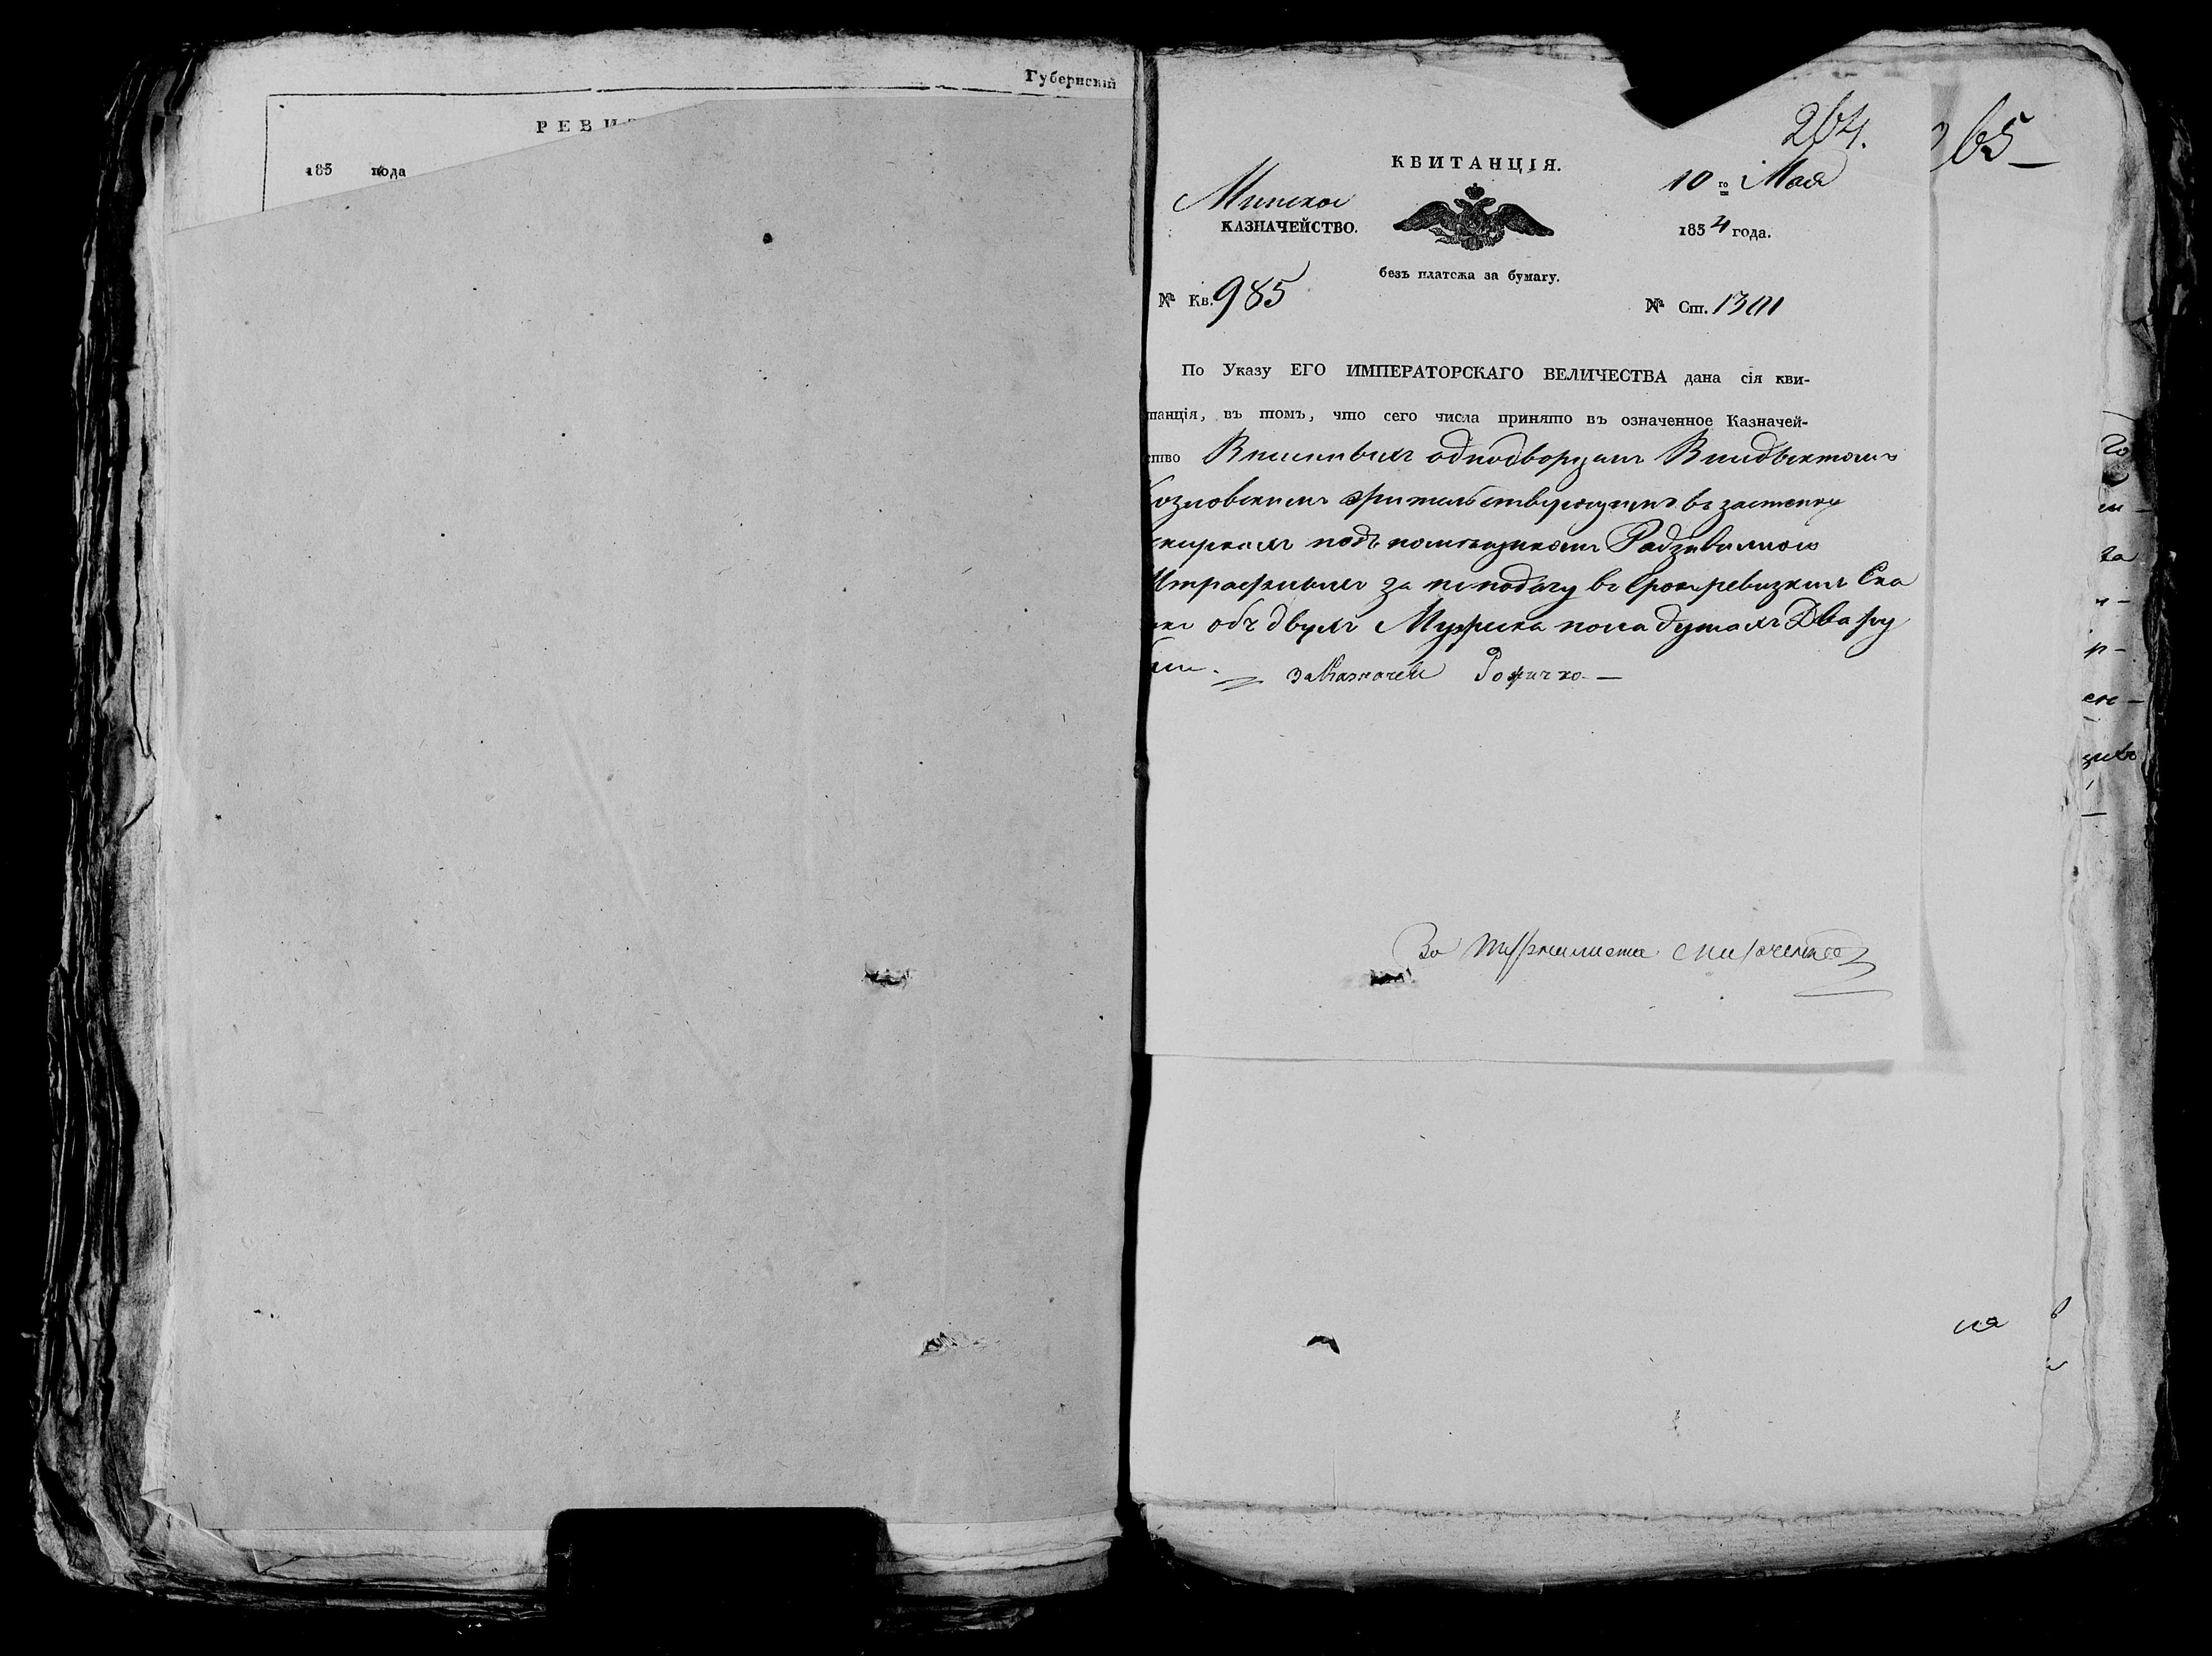 Губернскій
РЕВИ
185 года
264.
265
КВИТАНЦІЯ.
Минское
КАЗНАЧЕЙСТВО.
10 го Мая
1854 года.
безъ платежа за бумагу.
№ Кв. 985
№ Ст. 1301
По Указу ЕГО ИМПЕРАТОРСКАГО ВЕЛИЧЕСТВА дана сія кви-
танція, въ томъ, что сего числа принято въ означенное Казначей-
ство однодворцемъ
озловскимъ жительствующимъ въ застенку
подъ помещикомъ Радзивиломъ
Штрафныхъ за неподачу въ срокъ ревизкихъ Ска
объ двухъ Мужска пола душахъ Два ру
За Казначея
За
ся